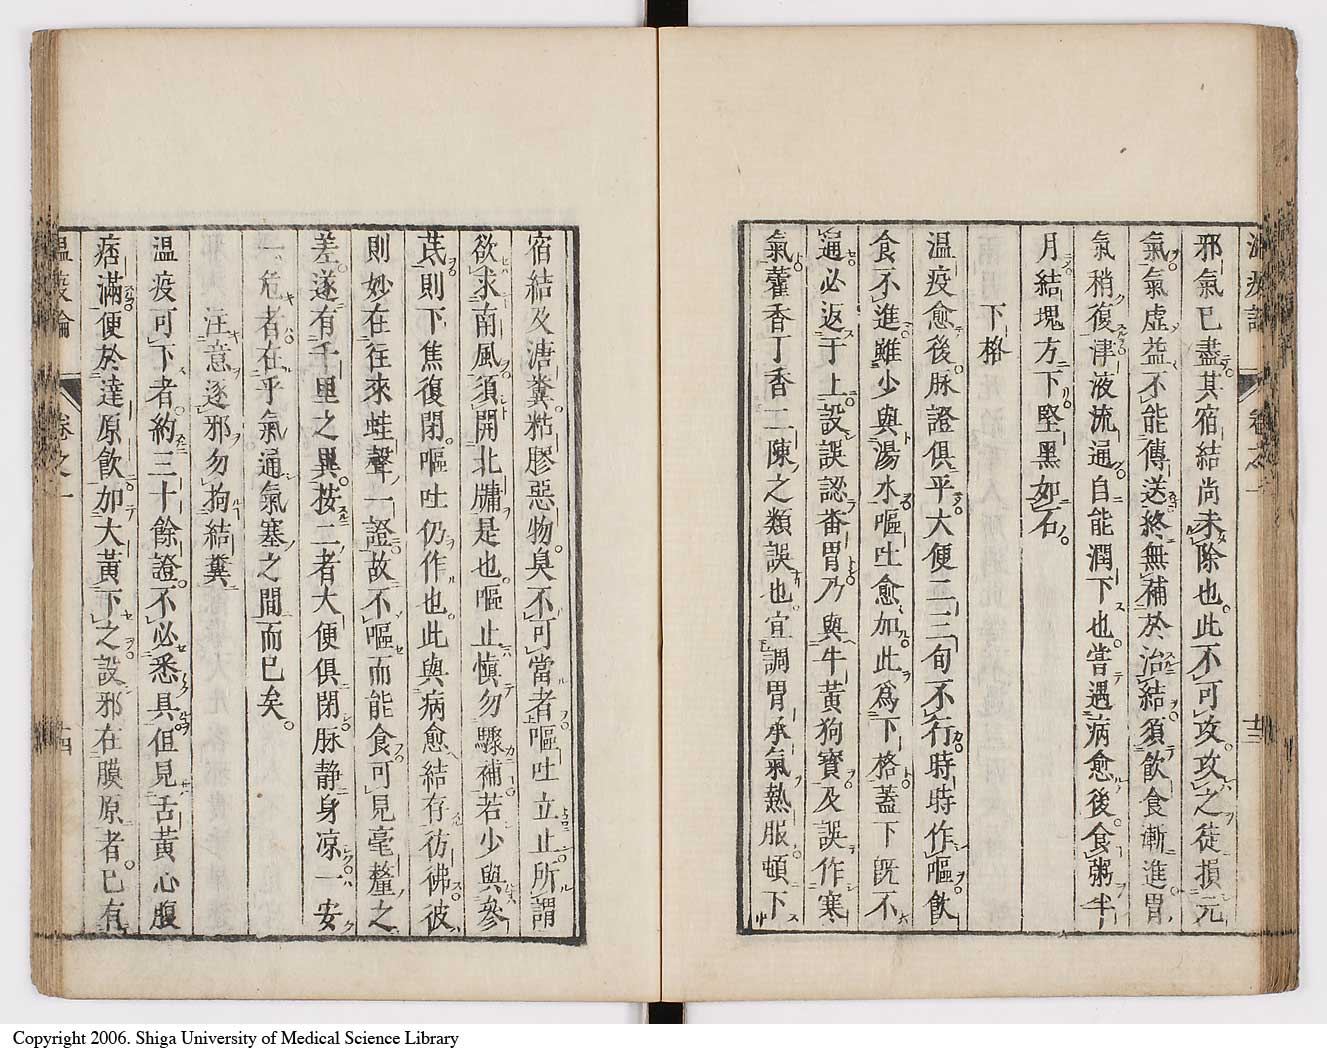 邪氣已盡其宿結尚未除也此不可攻攻之徒損元
氣氣虛益不能傳送終無補於治結須飲食漸進胃
氣稍復津液流通自能潤下也嘗遇病愈後食粥半
月結塊方下堅黑如石
下格
温疫愈後脉證俱平大便二三旬不行時時作嘔飲
食不進雖少與湯水嘔吐愈加此爲下格蓋下既不
通必返于上設誤認畨胃乃與牛黃狗寶及誤作寒
氣藿香丁香二陳之類誤也宜調胃承氣熱服頓下
宿結及溏糞粘膠惡物臭不可當者嘔吐立止所謂
欲求南風須開北牖是也嘔止愼勿驟補若少與參
芪則下焦復閉嘔吐仍作也此與病愈結存彷彿彼
則妙在往來蛙聲一證故不嘔而能食可見毫釐之
差遂有千里之異按二者大便俱閉脉靜身凉一安
一危者在乎氣通氣塞之間而已矣
注意逐邪勿拘結糞
温疫可下者約三十餘證不必悉具但見舌黃心腹
痞滿便於達原飲加大黃下之設邪在膜原者已有
温疫論 卷之一 十四